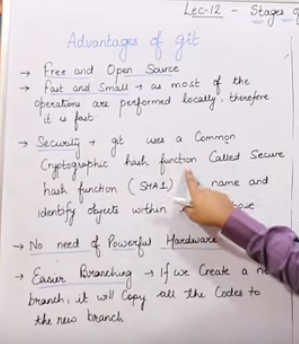 Lec-12 - Stages of
Advantages of git
→ Free and Open Source
→ Fast and Small → as most of the
operations are performed locally, therefore
it is fast
→ Security → git uses a Common
Cryptographic hash function Called Secure
hash function (SHA1) name and
identify objects within
→ No need of Powerful Hardware
→ Easier Branching → If we Create a
branch, it will Copy all the Codes to
the new branch